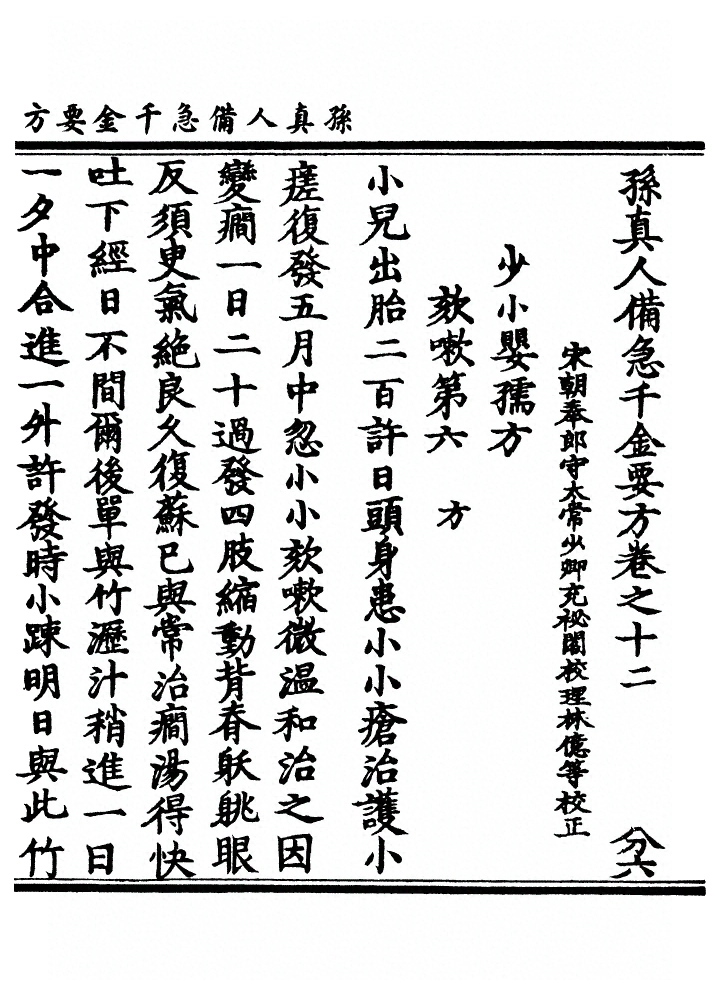 孫真人備急千金要方
孫真人備急千金要方卷之十二 分六
宋朝奉郎守太常少卿充祕閣校理林億等校正
少小嬰孺方
欬嗽第六 方
小兒出胎二百許日頭身患小小瘡治護小
瘥復發五月中忽小小欬嗽微温和治之因
變癇一日二十過發四肢縮動背脊躽䠷眼
反須臾氣絶良久復蘇已與常治癇湯得快
吐下經日不間爾後單與竹瀝汁稍進一日
一夕中合進一外許發時小踈明日與此竹